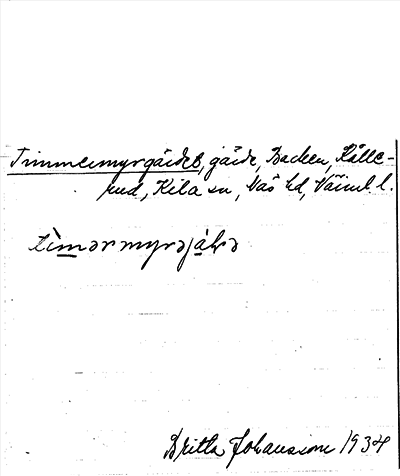 Timmermyrgärdet, gärde, Backen, Kålle-
rud, Kila sn, Näs hd, Värml l.
tìmərmyrəjàḷə
Britta Johansson 1934